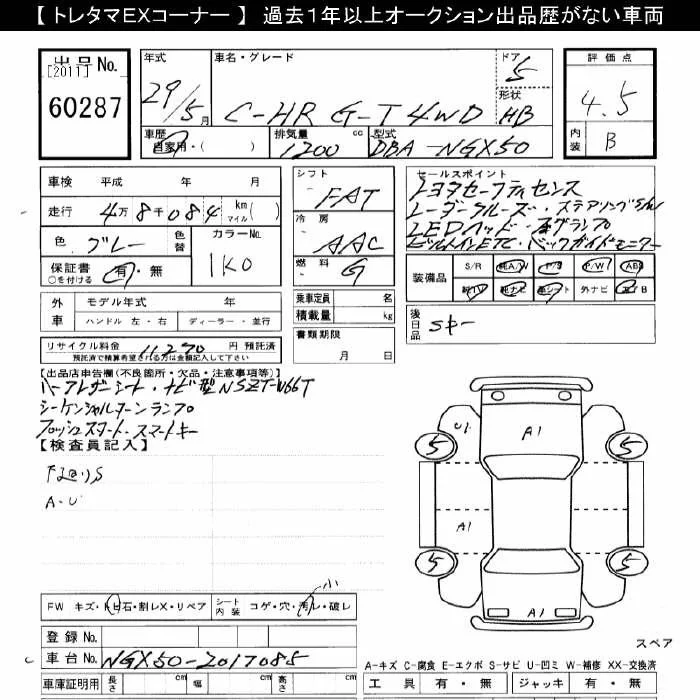 【 トレタマEXコーナー 】 過去1年以上オークション出品歴がない車両
出品 No.
[2011]
60287
年式
29/5月
車名・グレード
C-HR G-T 4WD
ドア
5
形状
HB
評価点
4.5
内装
B
車歴
自家用・( )
排気量
1200 cc
型式
DBA-NGX50
車検 平成 年 月
走行 4万8千084 km マイル( )
色 グレー 色替
カラーNo.
1K0
保証書 有・無
○を付ける
外車
モデル年式 年
ハンドル 左・右 ディーラー・並行
リサイクル料金 11,270 円 預託済
預託済で精算希望される方は金額記入して下さい
シフト
FAT
冷房
AAC
燃料
G
乗車定員 名
積載量 kg
書類期限
月 日
セールスポイント
トヨタセーフティセンス
レーダークルーズ・ステアリング
LEDヘッド・フォグランプ
ビルトインETC・バックガイドモニター
装備品
S/R 純A/W P/S P/W ABS
純TV 純ナビ 革シート 外ナビ エアB
後日品
Sキー
【出品店申告欄(不良箇所・欠品・注意事項等)】
ハーフレザーシート・ナビ型NSZT-W66T
シーケンシャルターンランプ
プッシュスタート・スマートキー
【検査員記入】
下廻りS
A・U
U1
A1
5
5
A1
5
5
A1
小
FW キズ・トビ石・割レX・リペア
シート内装
コゲ・穴・汚レ・破レ
登録 No.
車台 No. NGX50-2017085
車庫証明用 長さ cm 幅 cm 高さ cm
スペア
A-キズ C-腐食 E-エクボ S-サビ U-凹ミ W-補修 XX-交換済
工具 有・無 ジャッキ 有・無